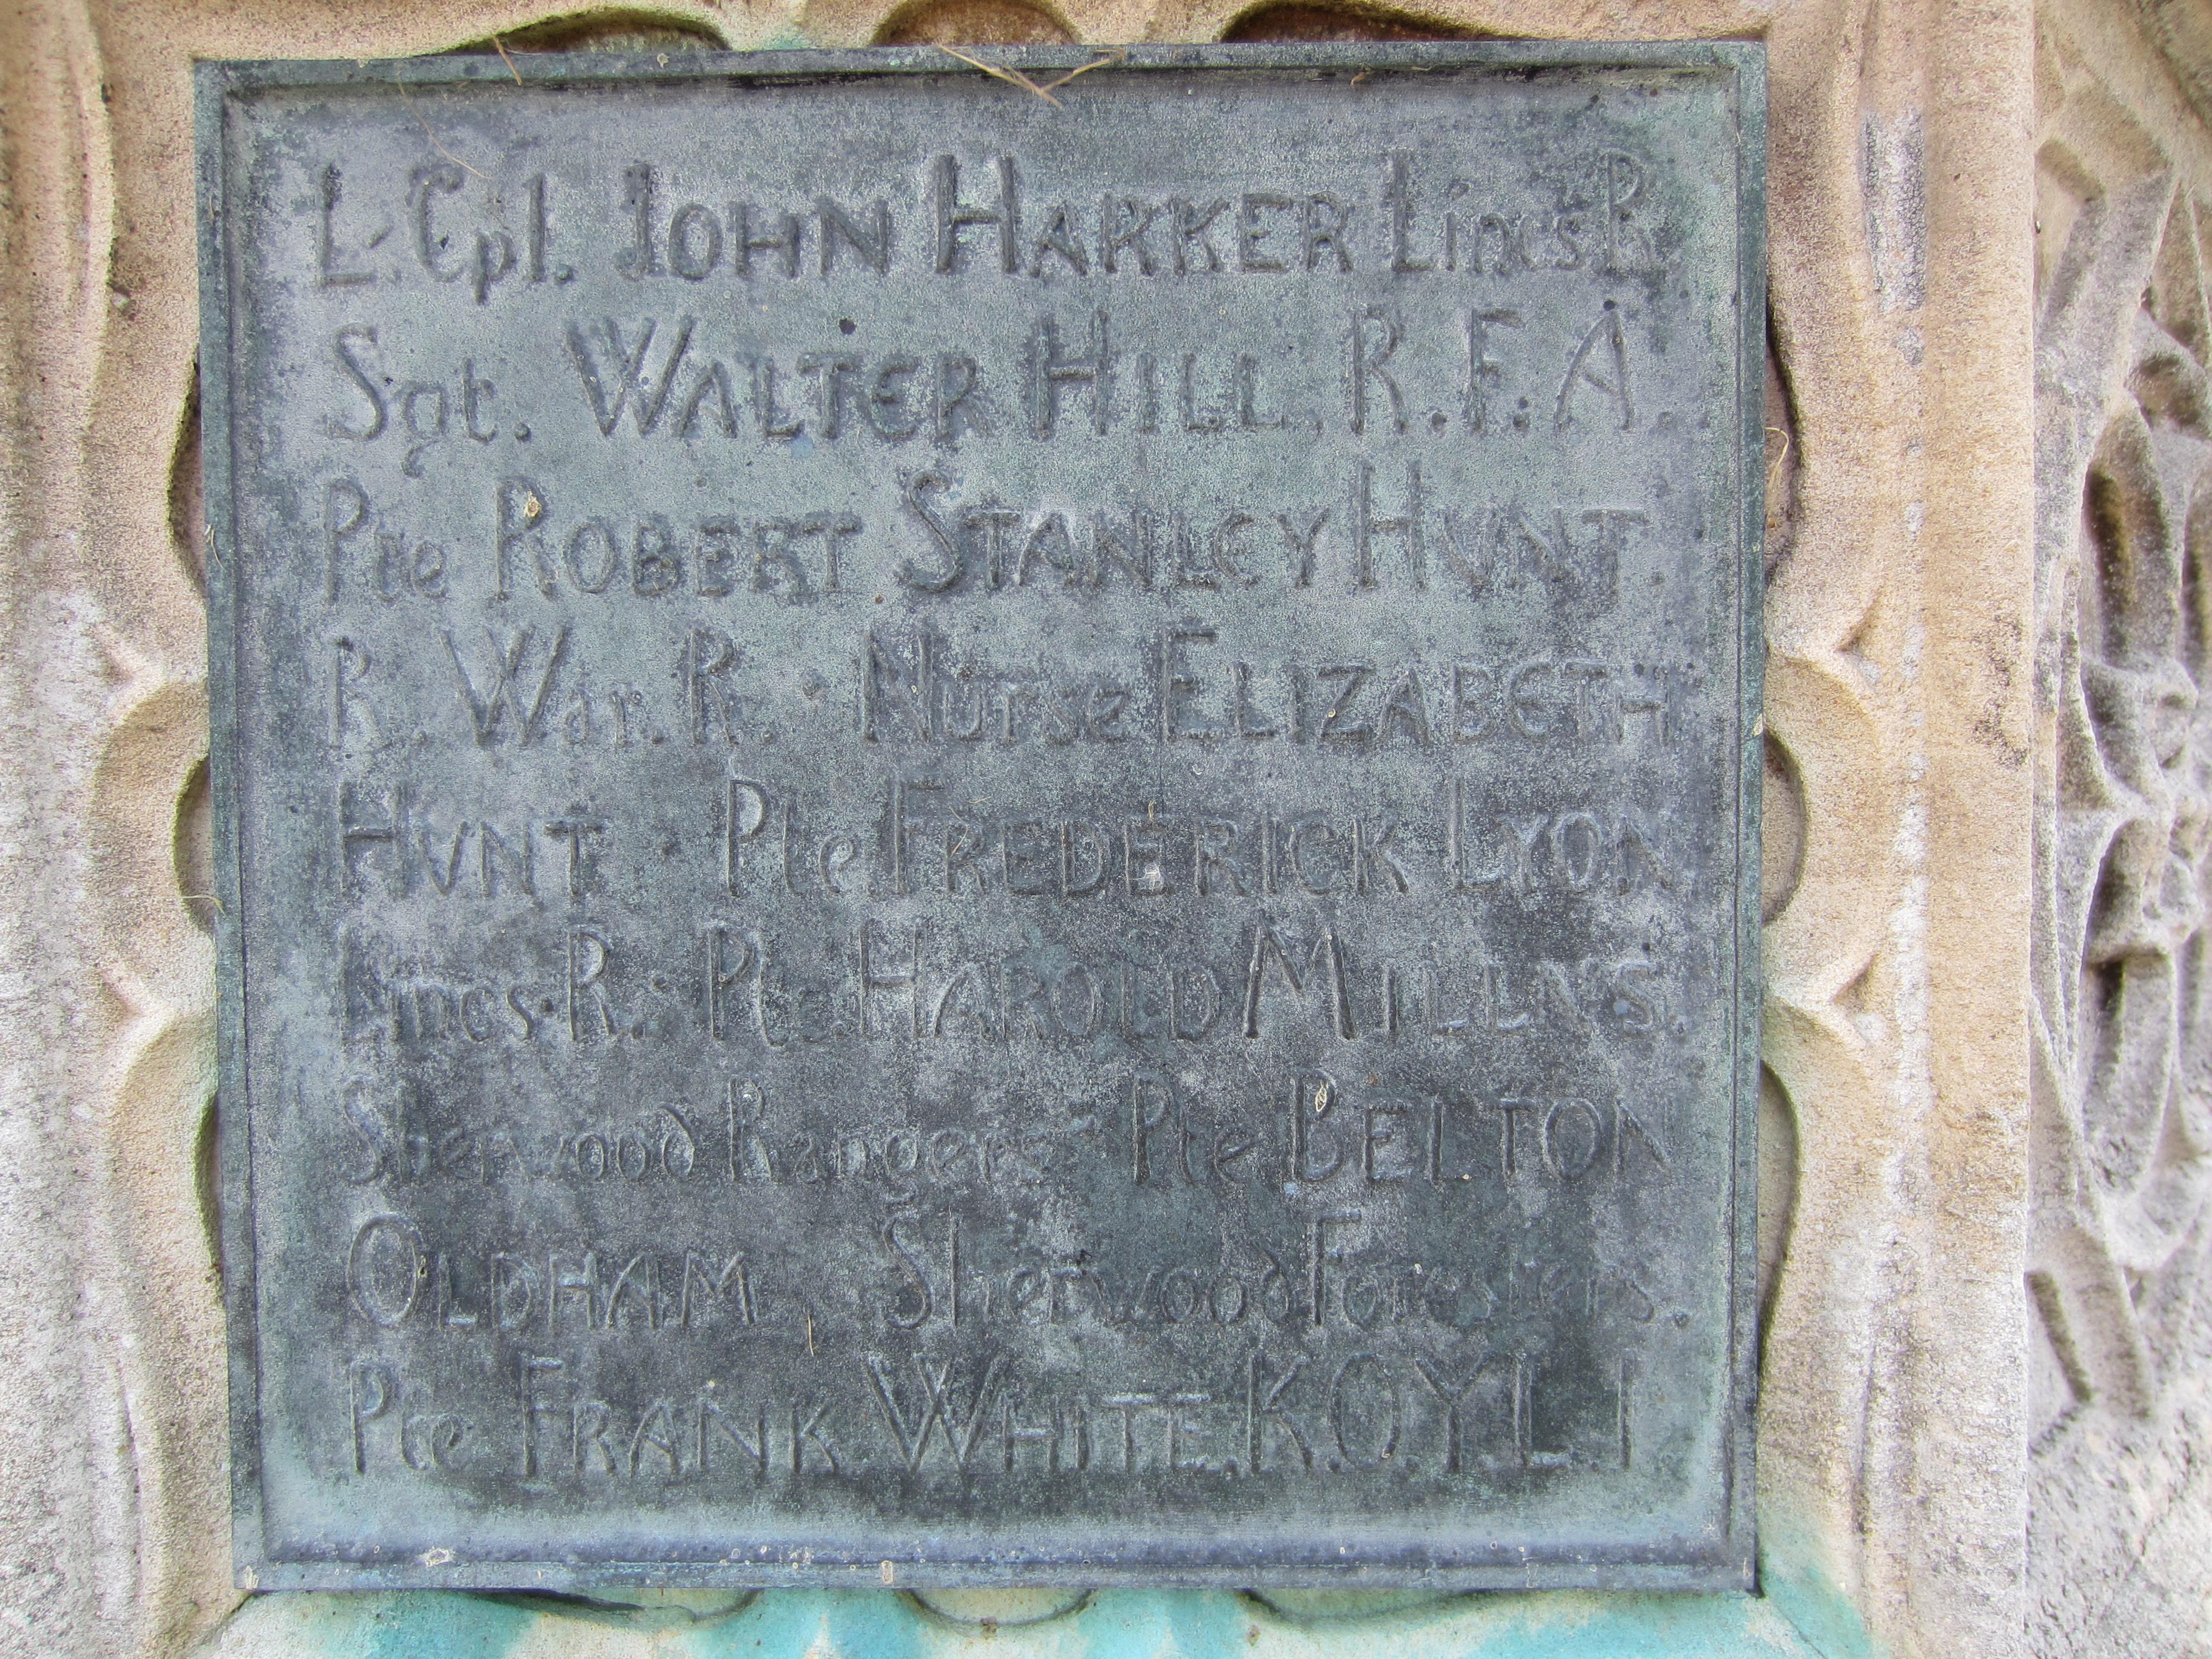 L. Cpl. JOHN HARKER Lincs R
Sgt. WALTER HILL. R.F.A.
Pte ROBERT STANLEY HVNT.
R. War. R. · Nurse ELIZABETH
HVNT · Pte. FREDERICK LYON
Lincs. R. · Pte. HAROLD MILLNS.
Sherwood Rangers Pte BELTON
OLDHAM Sherwood Foresters.
Pte FRANK WHITE. K.O.Y.L.I